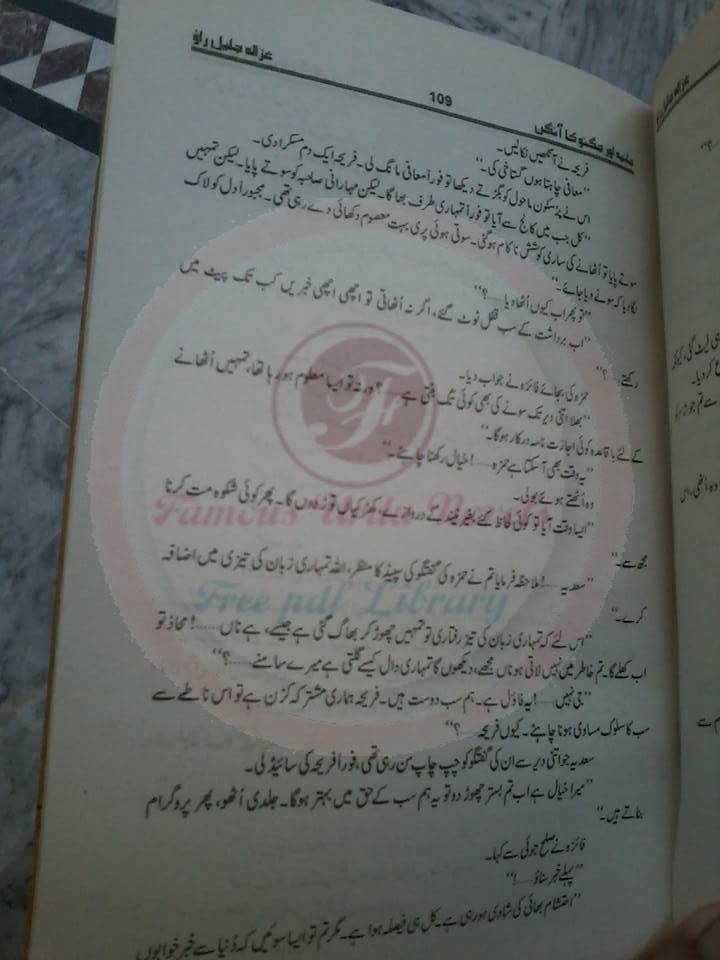 غزالہ جلیل راؤ
109
چاند اور جگنو کا آنگن
فریحہ نے آنکھیں نکالیں۔
”معافی چاہتا ہوں گستاخی کی۔“
اس نے پرسکون ماحول کو بگڑتے دیکھا تو فوراً معافی مانگ لی۔ فریحہ ایک دم مسکرا دی۔
”کل جب میں کالج سے آیا تو فوراً تمہاری طرف بھاگا لیکن مہارانی صاحبہ کو سوتے پایا۔ لیکن تمہیں
سوتے پایا تو اُٹھانے کی ساری کوشش ناکام ہوگئی۔ سوتی ہوئی پری بہت معصوم دکھائی دے رہی تھی۔ مجبوراً دل کو لاک
لگا دیا کہ سونے دیا جائے۔“
”تو پھر اب کیوں اُٹھا دیا......؟“
”اب برداشت کے سب قفل ٹوٹ گئے، اگر نہ اُٹھاتی تو اچھی اچھی خبریں کب تک پیٹ میں
رکھتے......؟“
حمزہ کی بجائے فائزہ نے جواب دیا۔
”بھلا اتنی دیر تک سونے کی بھی کوئی تک بنتی ہے......؟ ورنہ تو ایسا معلوم ہو رہا تھا، تمہیں اُٹھانے
کے لئے باقاعدہ کوئی اجازت نامہ درکار ہوگا۔“
”یہ وقت بھی آ سکتا ہے حمزہ......! خیال رکھنا چاہئے۔“
وہ اُٹھتے ہوئے بولی۔
”ایسا وقت آیا تو کوئی لحاظ کئے بغیر نیند کے دروازے، کھڑکیاں توڑ دوں گا۔ پھر کوئی شکوہ مت کرنا
مجھ سے۔“
”سعدیہ......! ملاحظہ فرمایا تم نے حمزہ کی گفتگو کی سپیڈ کا منظر، اللہ تمہاری زبان کی تیزی میں اضافہ
کرے۔“
”اس لئے کہ تمہاری زبان کی تیز رفتاری تو تمہیں چھوڑ کر بھاگ گئی ہے جیسے، ہے ناں......! محاذ تو
اب کھلے گا۔ تم خاطر میں نہیں لاتی ہو ناں مجھے، دیکھوں گا تمہاری دال کیسے گلتی ہے میرے سامنے......؟“
”جی نہیں......! یہ فاؤل ہے۔ ہم سب دوست ہیں۔ فریحہ ہماری مشترکہ کزن ہے تو اس ناطے سے
سب کا سلوک مساوی ہونا چاہئے۔ کیوں فریحہ......؟“
سعدیہ جو اتنی دیر سے ان کی گفتگو کو چپ چاپ سن رہی تھی، فوراً فریحہ کی سائیڈ لی۔
”میرا خیال ہے اب تم بستر چھوڑ دو تو یہ ہم سب کے حق میں بہتر ہوگا۔ جلدی اُٹھو، پھر پروگرام
بناتے ہیں۔“
فائزہ نے صلح جوئی سے کہا۔
”پہلے خبر سناؤ......!“
”احتشام بھائی کی شادی ہو رہی ہے۔ کل ہی فیصلہ ہوا ہے۔ مگر تم تو ایسا سوئیں کہ دُنیا سے بے خبر خوابوں
Famous Urdu Novels
Free pdf Library
غزالہ جلیل راؤ